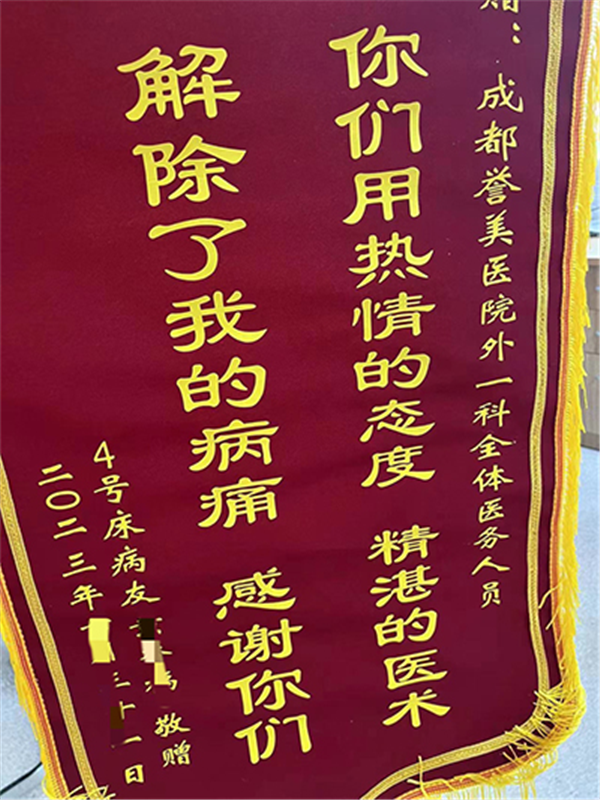 赠：成都誉美医院外一科全体医务人员
你们用热情的态度 精湛的医术
解除了我的病痛 感谢你们
4号床病友 敬赠
二〇二三年 三十一日